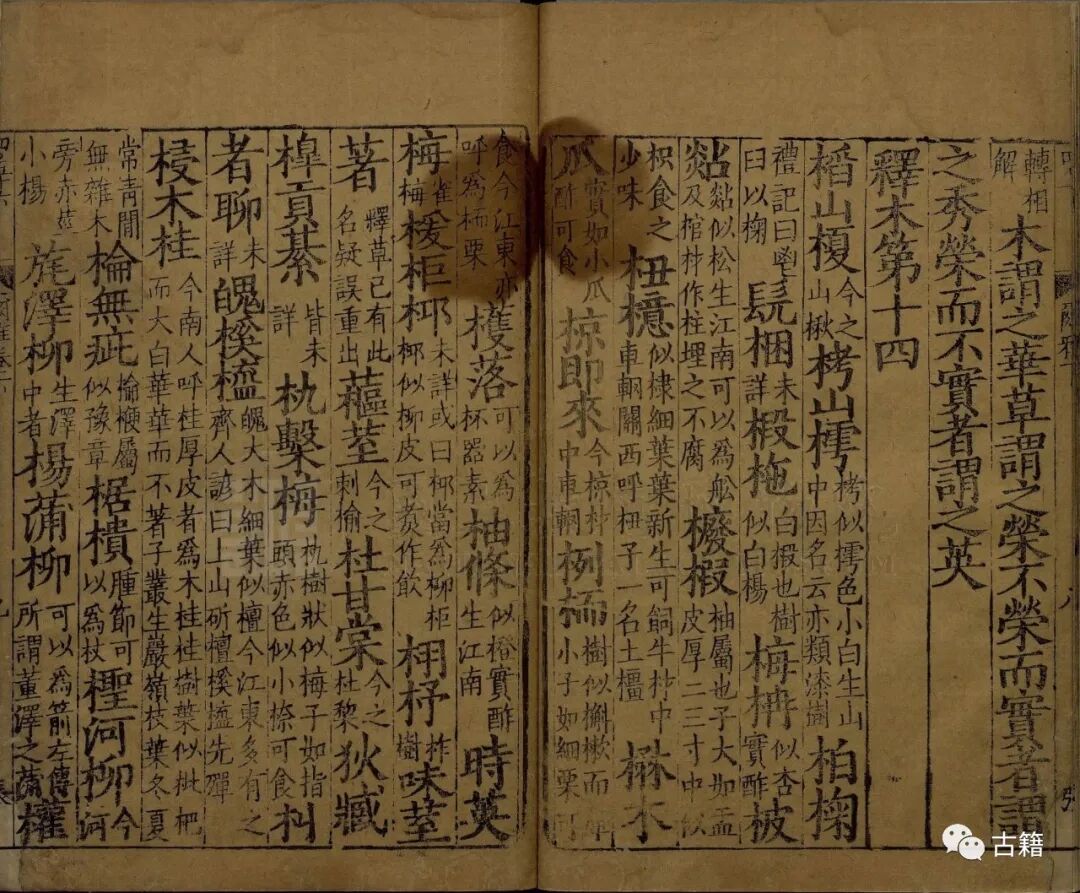 轉相解木謂之華草謂之榮不榮而實者謂
之秀榮而不實者謂之英
釋木第十四
稻山榎今之山楸栲山樗栲似樗色小白生山中因名云亦類漆樹柏椈
禮記曰鬯臼以椈髡梱未詳椵柂白椵也樹似白楊梅柟似杏實酢柀
煔煔似松生江南可以爲舩及棺材作柱埋之不腐櫠椵柚屬也子大如盂皮厚二三寸中似
枳食之少味杻檍似棣細葉葉新生可飼牛材中車輞關西呼杻子一名土橿楙木
瓜實如小瓜酢可食椋即來今椋材中車輞栵栭樹似槲樕而庳小子如細栗可
食今江東亦呼爲栭栗檴落可以爲杯器素柚條似橙實酢生江南時英
梅雀梅楥柜桏未詳或曰桏當爲柳柜桏似柳皮可煑作飲栩杼柞樹味荎
著釋草已有此名疑誤重出藲荎今之刺榆杜甘棠今之杜棃狄臧
槹貢綦皆未詳朹檕梅朹樹狀似梅子如指頭赤色似小㮈可食朻
者聊未詳魄榽橀魄大木細葉似檀今江東多有之齊人諺曰上山斫檀榽橀先殫
梫木桂今南人呼桂厚皮者爲木桂桂樹葉似枇杷而大白華華而不著子叢生巖嶺枝葉冬夏
常青閒無雜木棆無疵棆楩屬似豫章椐樻腫節可以爲杖檉河柳今河
旁赤莖小楊旄澤柳生澤中者楊蒲柳可以爲箭左傳所謂董澤之蒲權
古籍